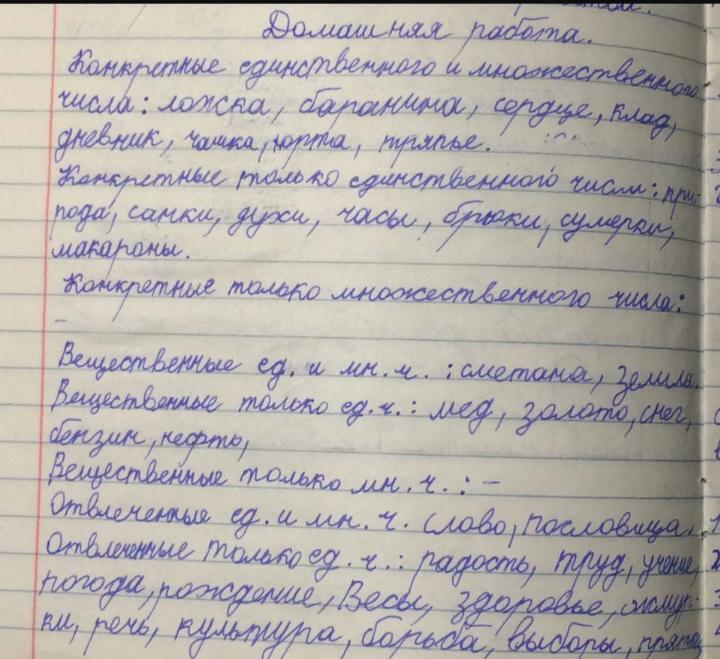 Домашняя работа.
Конкретные единственного и множественного
числа: ложка, баранина, сердце, клад,
дневник, чашка, юрта, тряпье.
Конкретные только единственного числа: при-
рода, санки, духи, часы, брюки, сумерки,
макароны.
Конкретные только множественного числа:
–
Вещественные ед. и мн. ч. : сметана, земля.
Вещественные только ед. ч. : мед, золото, снег,
бензин, нефть,
Вещественные только мн. ч. : –
Отвлеченные ед. и мн. ч. слово, пословица.
Отвлеченные только ед. ч. : радость, труд, учение,
погода, рождение, Весы, здоровье, жмур-
ки, речь, культура, борьба, выборы, прятки